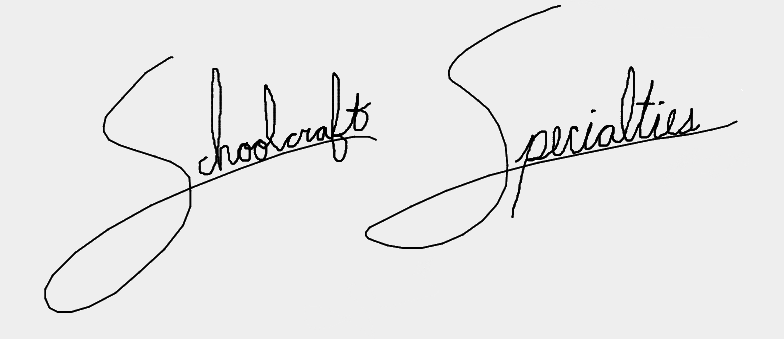 Schoolcraft Specialties